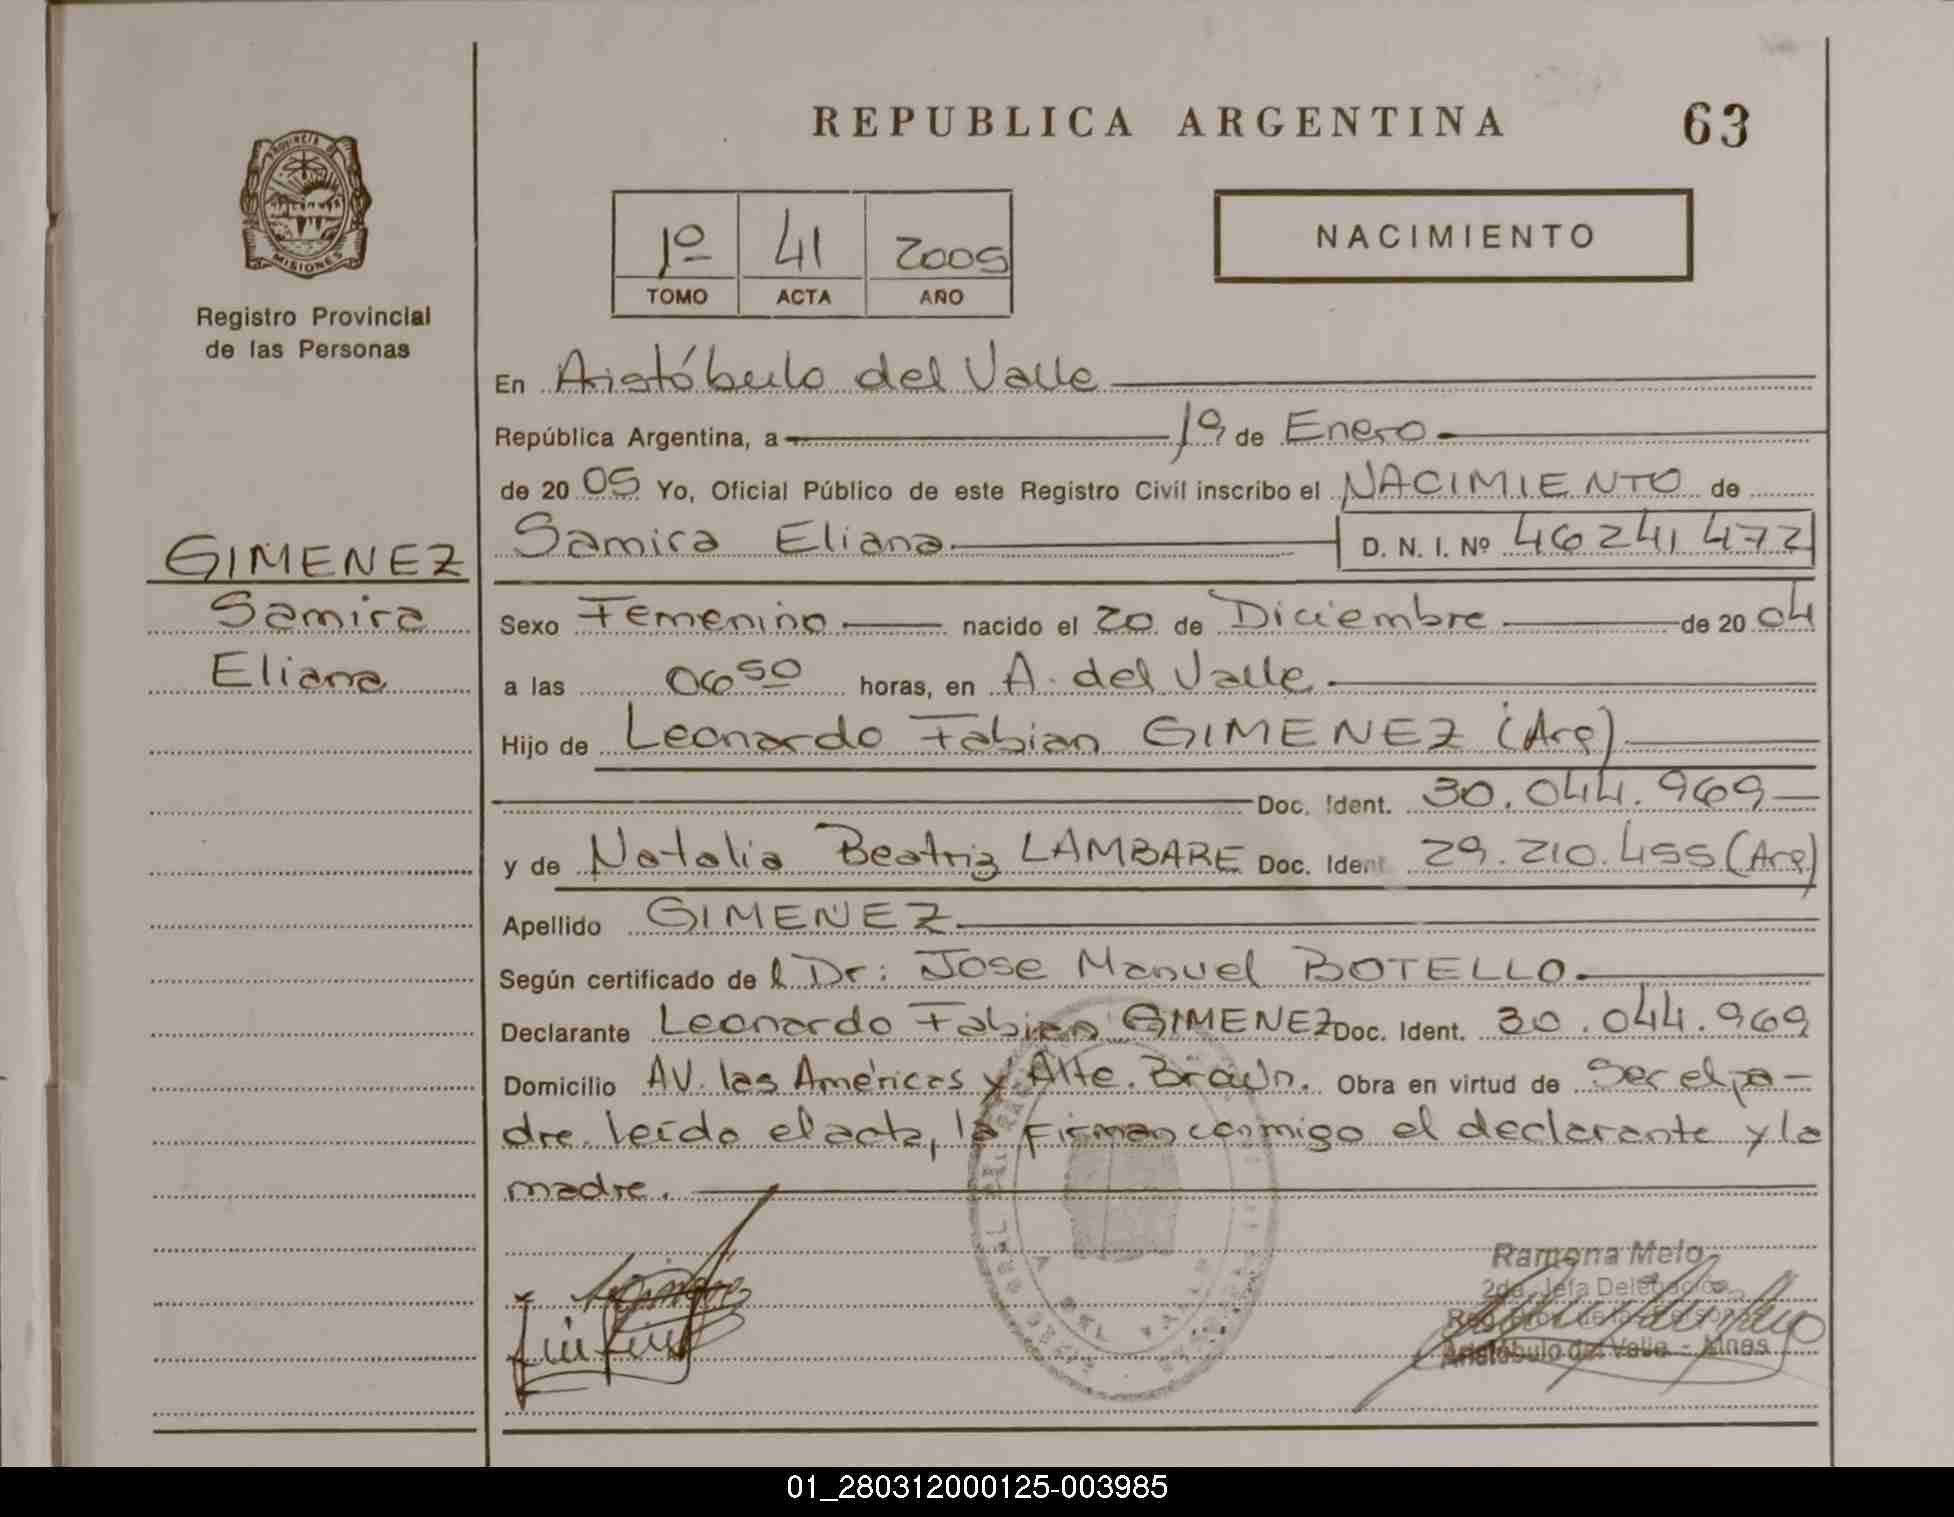 REPUBLICA ARGENTINA
63
PROVINCIA DE
MISIONES
Registro Provincial
de las Personas
1º 41 2005
TOMO ACTA AÑO
NACIMIENTO
En Aristóbulo del Valle
República Argentina, a 19 de Enero
de 2005 Yo, Oficial Público de este Registro Civil inscribo el NACIMIENTO de
Samira Eliana D. N. I. Nº 46241472
GIMENEZ
Samira
Eliana
Sexo Femenino nacido el 20 de Diciembre de 2004
a las 06 50 horas, en A. del Valle
Hijo de Leonardo Fabian GIMENEZ (Arg)
Doc. Ident. 30.044.969
y de Natalia Beatriz LAMBARE Doc. Ident 29.210.455 (Arg)
Apellido GIMENEZ
Según certificado de l Dr: Jose Manuel BOTELLO
Declarante Leonardo Fabian GIMENEZ Doc. Ident. 30.044.969
Domicilio AV. las Américas y Alte. Brown. Obra en virtud de Ser el pa-
dre. leído el acta, la firman conmigo el declarante y la
madre.
Ramona Melo
2da. Jefa Delegación
Aristóbulo del Valle - Mnes
01_280312000125-003985